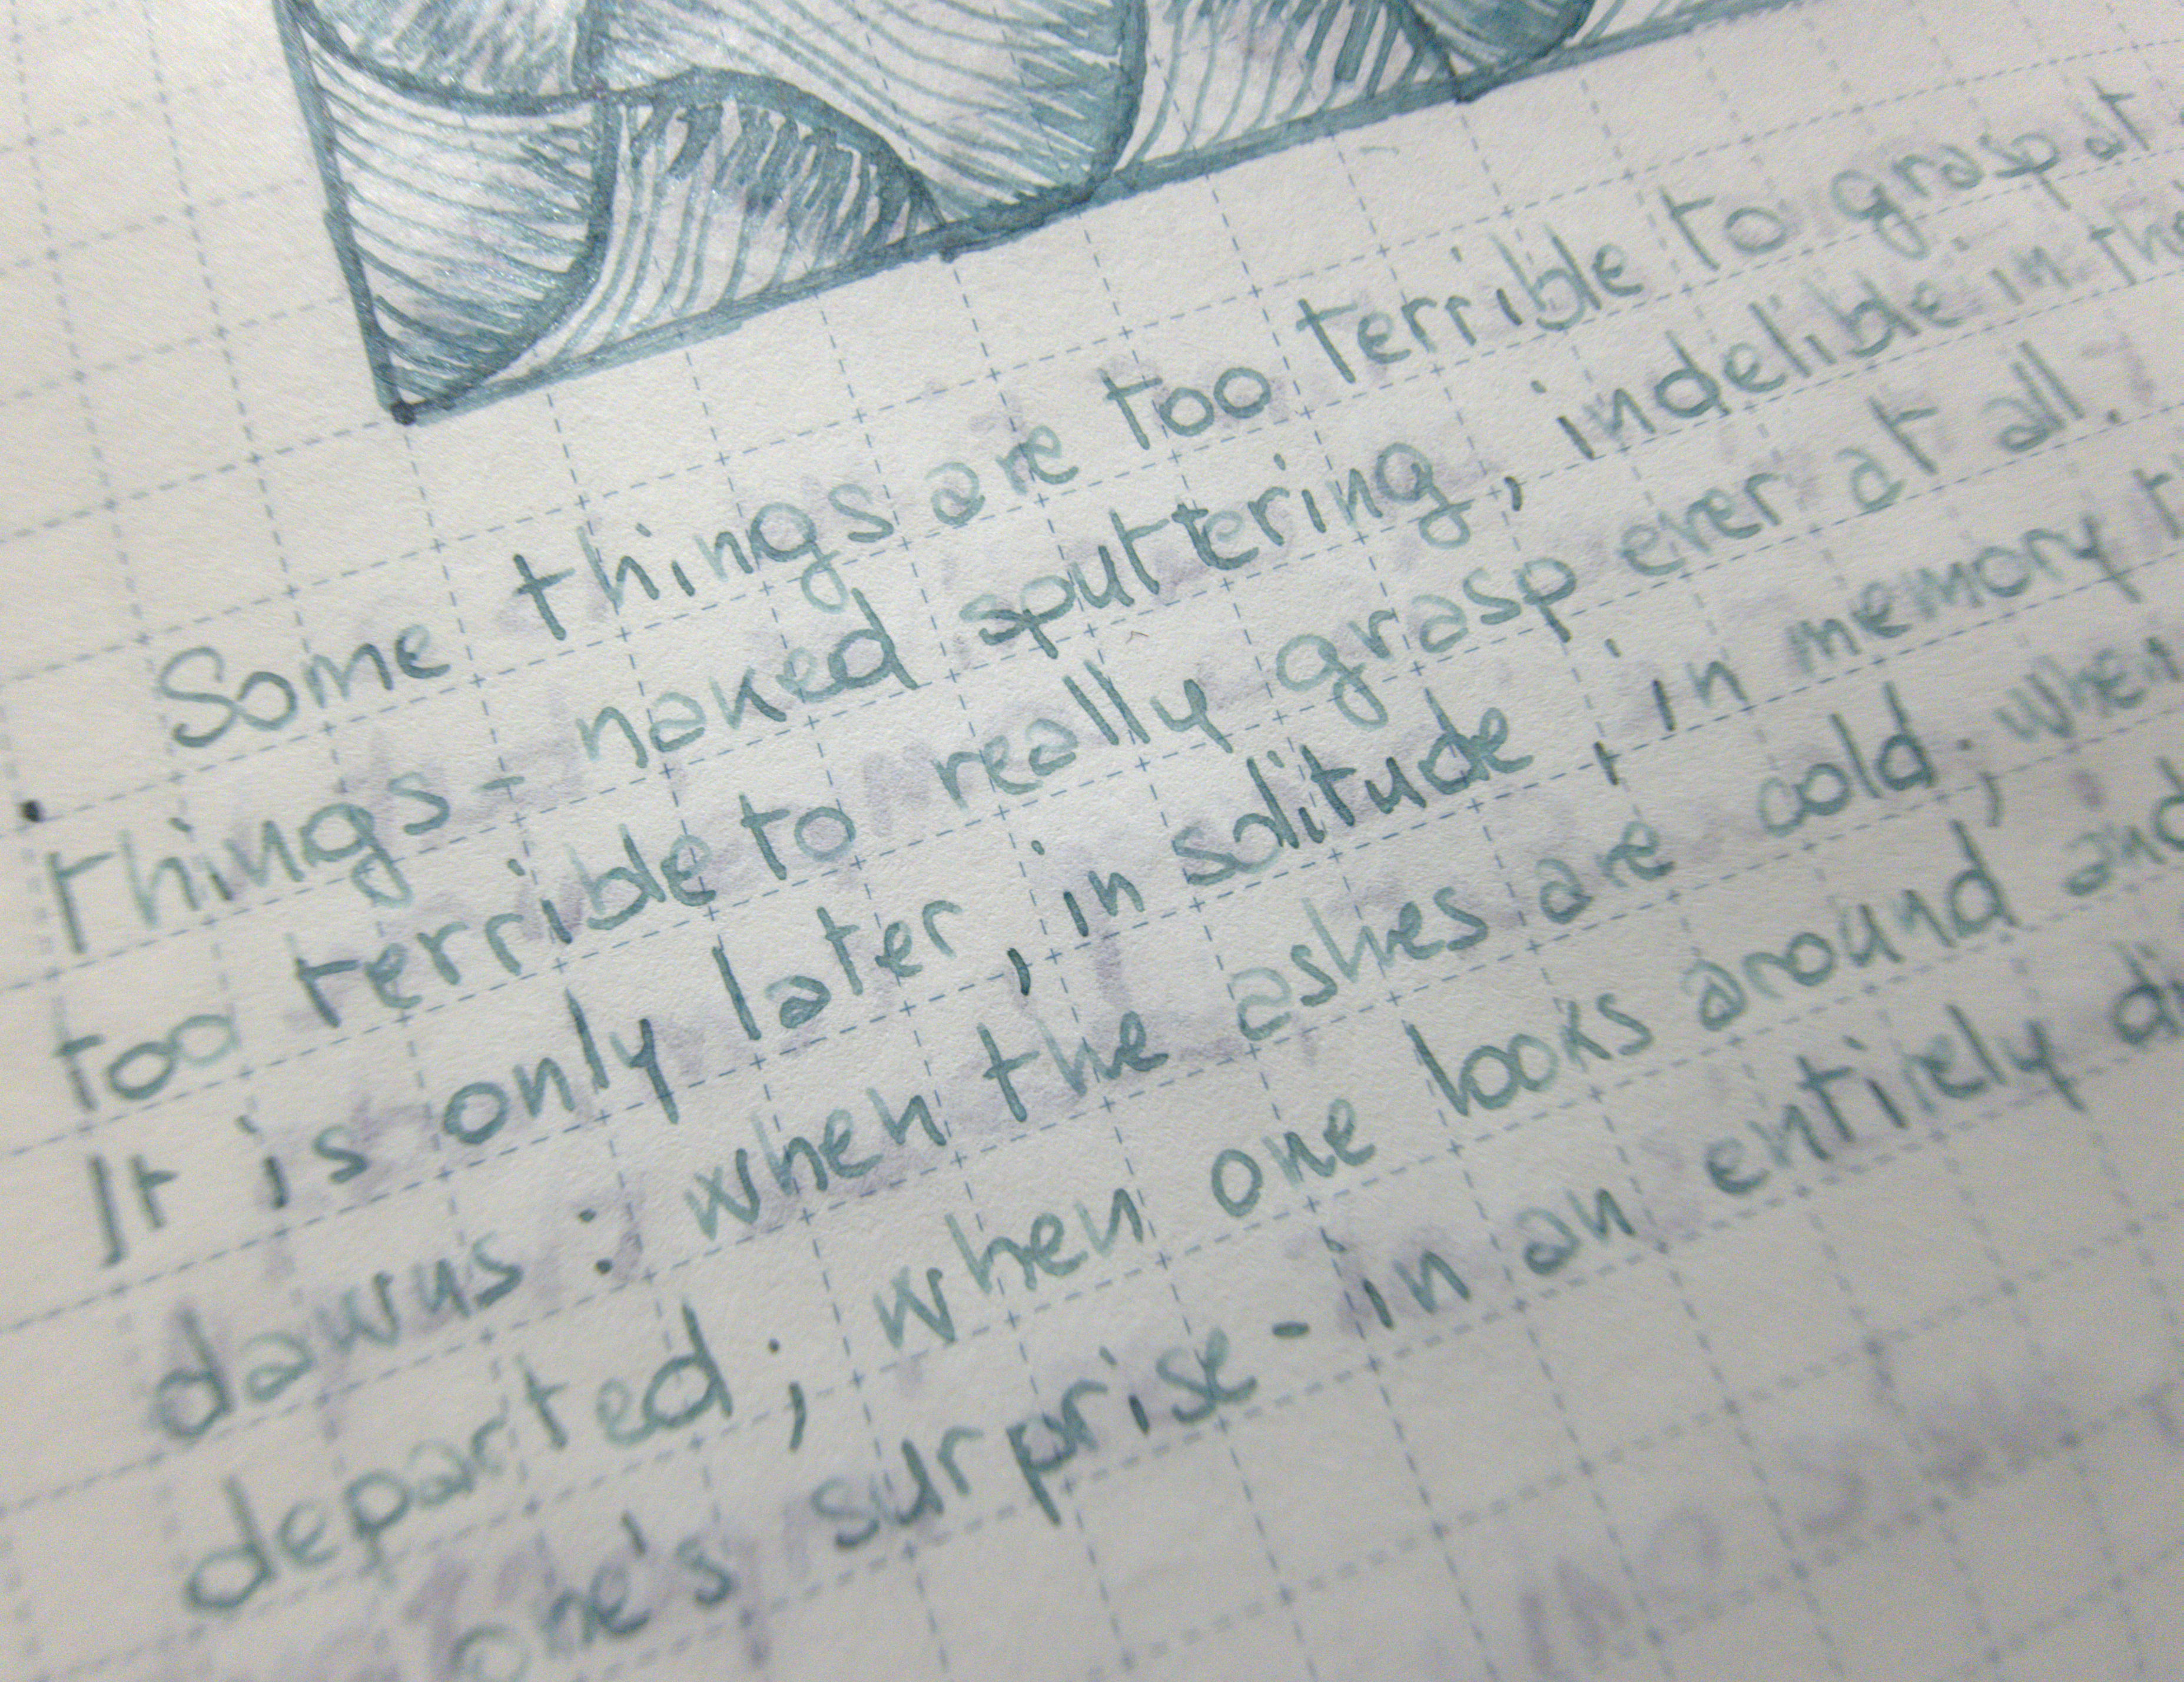 Some things are too terrible to grasp at
things - naked sputtering, indelible in the
too terrible to really grasp ever at all.
It is only later, in solitude, in memory
dawns: when the ashes are cold; when
departed; when one looks around and
one's surprise - in an entirely